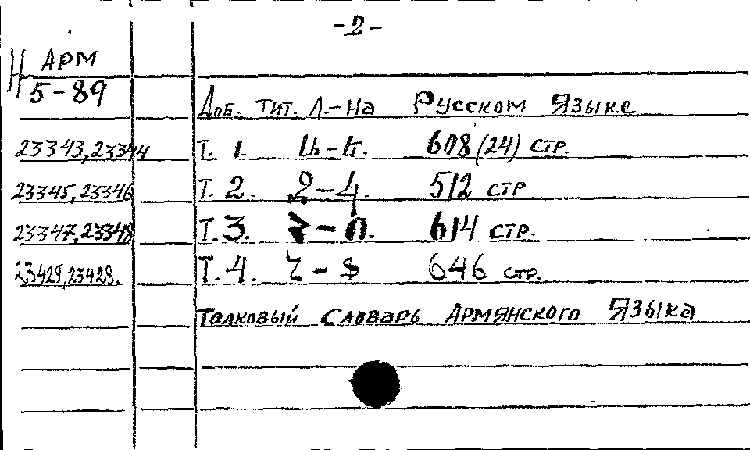 -2-
Н АРМ
5-89
Доб. тит. л.-на Русском языке
23343, 23344 Т. 1 Ա-Ե. 608 (24) стр.
23345, 23346 Т. 2. Զ-Կ. 512 стр
23347, 23348 Т. 3. 614 стр.
23429, 23429. Т. 4. 646 стр.
Толковый словарь Армянского Языка